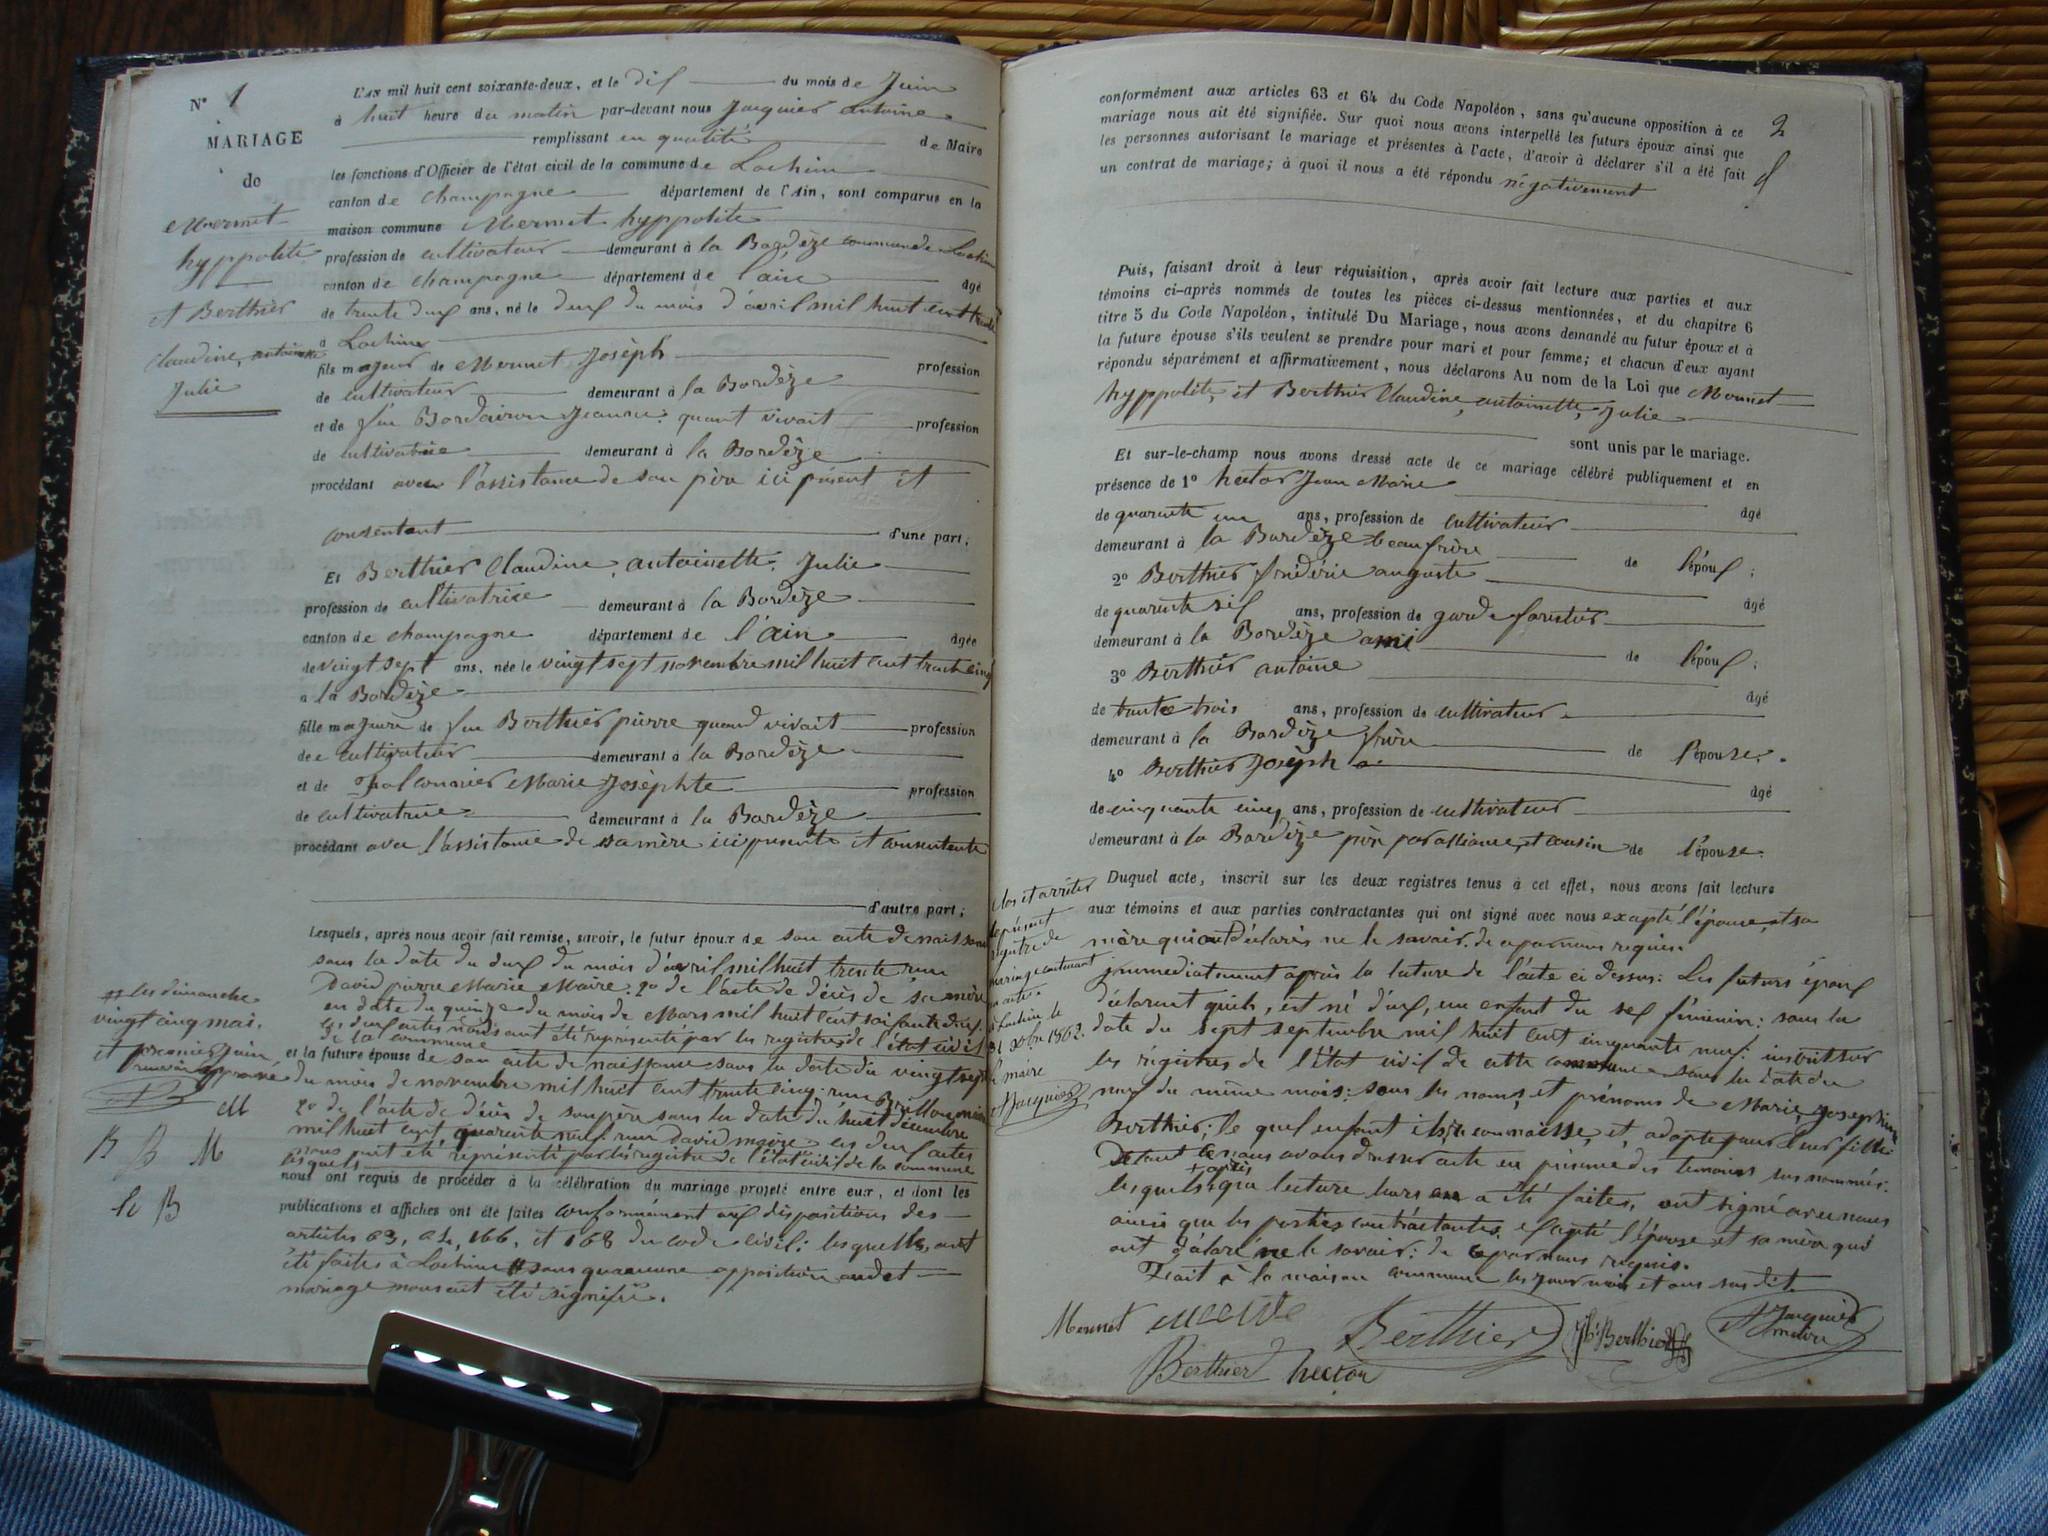 N° 1
MARIAGE
de
Mermet
hyppolite
et Berthier
Claudine, antoinette
Julie
L'an mil huit cent soixante-deux, et le dix du mois de Juin
à huit heure du matin par-devant nous Jacquier antoine
remplissant en qualité de Maire
les fonctions d'Officier de l'état civil de la commune de Lochieu
canton de champagne département de l'Ain, sont comparus en la
maison commune Mermet hyppolite
profession de cultivateur demeurant à la Bardèze commune de Lochieu
canton de champagne département de l'ain âgé
de trente deux ans, né le deux du mois d'avril mil huit cent trente
à Lochieu
fils majeur de Mermet Josèph profession
de cultivateur demeurant à la Bardèze
et de feu Bordairon Jeanne: quant vivait profession
de cultivatrice demeurant à la Bardèze
procédant avec l'assistance de son père ici présent et
consentant d'une part;
Et Berthier Claudine, antoinette, Julie
profession de cultivatrice demeurant à la Bardèze
canton de champagne département de l'ain âgée
de vingt sept ans, née le vingt sept novembre mil huit cent trente cinq
a la Bardèze
fille majeure de feu Berthier pierre quand vivait profession
de cultivateur demeurant à la Bardèze
et de Falconnier Marie Josèphte profession
de cultivatrice demeurant à la Bardèze
procédant avec l'assistance de sa mère ici présente et consentente
d'autre part;
Lesquels, après nous avoir fait remise, savoir, le futur époux de son acte de naissance
sous la date du deux du mois d'avril mil huit trente,
David pierre Marie Maire: 2° de l'acte de décès de sa mère
en date du quinze du mois de Mars mil huit cent soixante deux.
les deux actes nous ont été représenté par les registres de l'état civil
de la commune
et la future épouse de son acte de naissance sous la date du vingt sept
du mois de novembre mil huit cent trente cinq.
2° de l'acte de décès de son père sous la date du huit décembre
mil huit cent quarante neuf. David maire: les deux actes
nous ont été représenté par les registre de l'état civil de la commune
lesquels
nous ont requis de procéder à la célébration du mariage projeté entre eux, et dont les
publications et affiches ont été faites conformément aux dispositions des
articles 63, 64, 166, et 168 du code civil: lesquelles ont
été faites à Lochieu # sans qu'aucune opposition audet
mariage nous ait été signifié.
# les dimanche
vingt cinq mai.
et premier juin
renvoi approuvé
M
B B M
h B
2
conformément aux articles 63 et 64 du Code Napoléon, sans qu'aucune opposition à ce
mariage nous ait été signifiée. Sur quoi nous avons interpellé les futurs époux ainsi que
les personnes autorisant le mariage et présentes à l'acte, d'avoir à déclarer s'il a été fait
un contrat de mariage; à quoi il nous a été répondu négativement
Puis, faisant droit à leur réquisition, après avoir fait lecture aux parties et aux
témoins ci-après nommés de toutes les pièces ci-dessus mentionnées, et du chapitre 6
titre 5 du Code Napoléon, intitulé Du Mariage, nous avons demandé au futur époux et à
la future épouse s'ils veulent se prendre pour mari et pour femme; et chacun d'eux ayant
répondu séparément et affirmativement, nous déclarons Au nom de la Loi que Mermet
hyppolite, et Berthier Claudine, antoinette, Julie
sont unis par le mariage.
Et sur-le-champ nous avons dressé acte de ce mariage célébré publiquement et en
présence de 1° hector Jean Marie
âgé
de quarente un ans, profession de cultivateur
demeurant à la Bardèze beaufrère de l'époux;
2° Berthier frédéric auguste
âgé
de quarente six ans, profession de garde forestier
demeurant à la Bardèze ami de l'époux;
3° Berthier antoine
âgé
de trente trois ans, profession de cultivateur
demeurant à la Bardèze frère de l'épouse.
4° Berthier Josèph
âgé
de cinquante cinq ans, profession de cultivateur
demeurant à la Bardèze père par alliance, et cousin de l'épouse.
Duquel acte, inscrit sur les deux registres tenus à cet effet, nous avons fait lecture
aux témoins et aux parties contractantes qui ont signé avec nous excepté l'épouse, et sa
mère qui ont déclarés ne le savoir. de ce par nous requis.
immediatement après la lecture de l'acte ci dessus: Les futurs époux
déclarent quils, est né d'eux, un enfant du sex féminin: sous la
date du sept septembre mil huit cent cinquante neuf: inscrit sur
les régistres de l'état civil de cette commune sous la date du
neuf du même mois: sous les noms, et prénoms de Marie Josephine
Berthier; le quel enfant ils reconnaisse, et, adopte pour leur fille
De tout ce nous avons dresser acte en présence des temoins sus nommés:
lesquels après que lecture leurs en a été faites, ont signé avec nous
ainsi que les parties contractantes. excepté l'épouse et sa mère qui
ont déclaré ne le savoir: de ce par nous requis.
Frait à la maison commune les jour mois et ans susdit.
clos et arrêter
le présent
registre de
mariage contenant
un acte.
à Lochieu le
31 xbre 1862.
le maire
Jacquier
Mermet
Berthier
Jh. Berthier
Jacquier
maire
Berthier hector